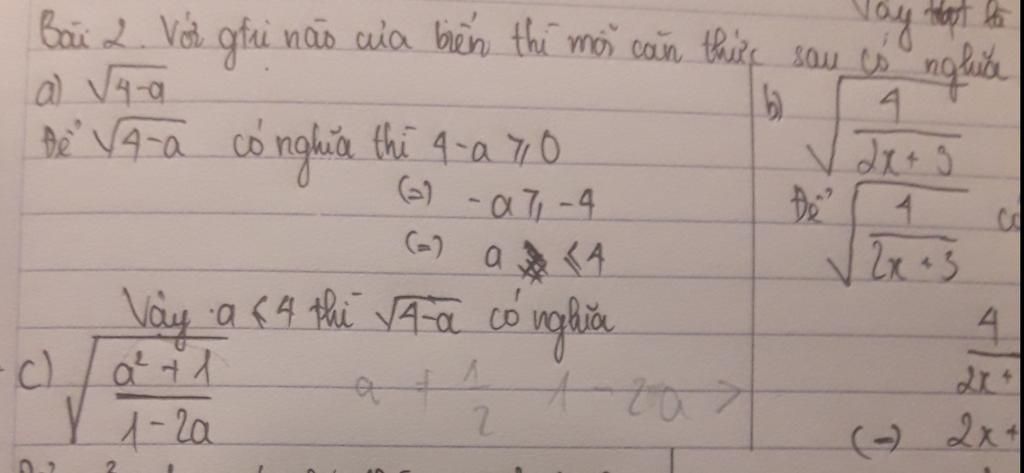 Vậy
Bài 2. Với gtri nào của biến thì mỗi căn thức sau có nghĩa
a) √(4-a)
Để √(4-a) có nghĩa thì 4-a ≥ 0
(=) -a ≥ -4
(=) a ≤ 4
Vậy a ≤ 4 thì √(4-a) có nghĩa
b) √(4/(2x+3))
Để √(4/(2x+3)) có
4/2x+
(=) 2x+
c) √((a²+1)/(1-2a))
a ≠ 1/2 1-2a >